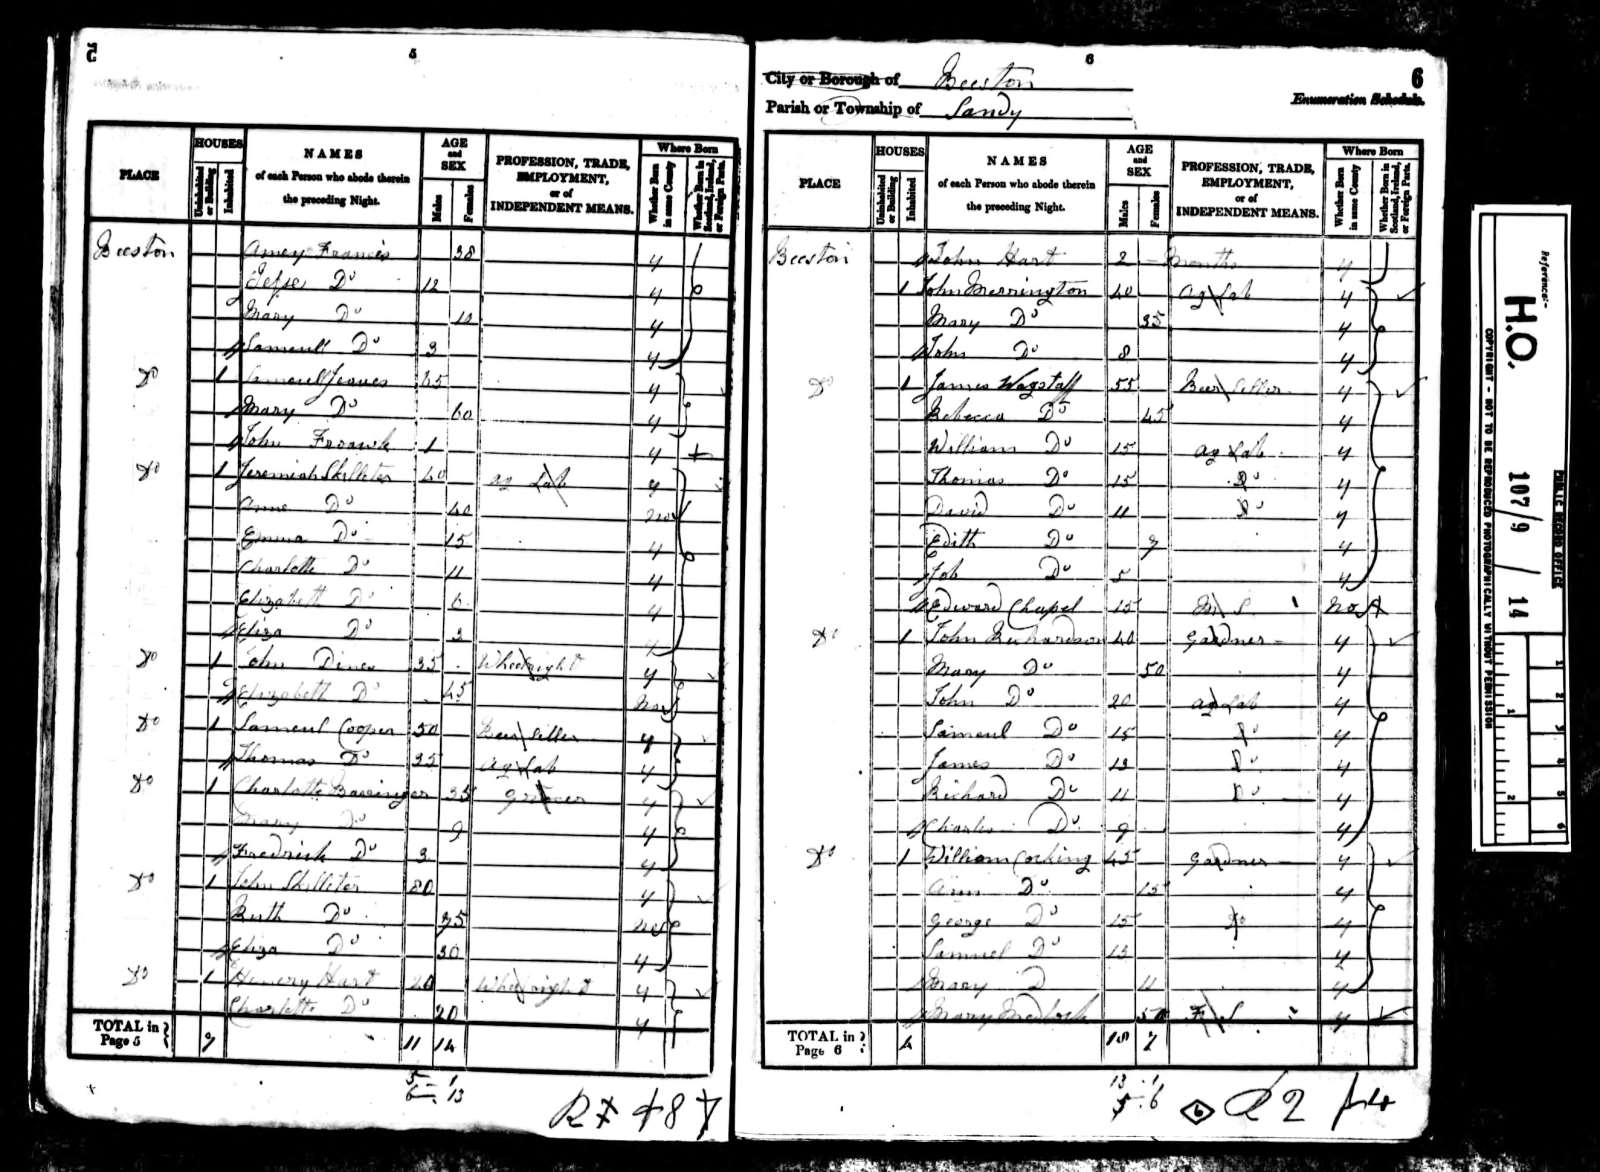 5
5
PLACE
HOUSES
Uninhabited or Building
Inhabited
NAMES
of each Person who abode therein
the preceding Night.
AGE
and
SEX
Males
Females
PROFESSION, TRADE,
EMPLOYMENT,
or of
INDEPENDENT MEANS.
Where Born
Whether Born in same County
Whether Born in Scotland, Ireland, or Foreign Parts.
Beeston Amey Francis 38 y
Jesse Do 12 y
Mary Do y
Samuell Do 3 y
Do 1 Samuell Jeaves 65 y
Mary Do 60 y
John 1 y
Do 1 Jeremiah Skilleter 40 Ag Lab y
Anne Do 40 no
Emma Do 15 y
Charlotte Do 11 y
Elizabeth Do 6 y
Eliza Do 3 y
Do 1 John 35 Wheelright y
Elizabeth Do 45 no
Do 1 Sameul Cooper 50 Beer Seller y
Thomas Do 35 Ag Lab y
Do 1 Charlotte Bassinger 35 y
Mary Do 9 y
Fredrick Do 3 y
Do 1 John Skilleter 80 y
Ruth Do 75 no
Eliza Do 30 y
Do 1 Henery Hart 20 Wheelright y
Charlotte Do 20 y
TOTAL in
Page 5 7 11 14
5 - 1
6 - 13
6
6
City or Borough of Beeston
Enumeration Schedule.
Parish or Township of Sandy
PLACE
HOUSES
Uninhabited or Building
Inhabited
NAMES
of each Person who abode therein
the preceding Night.
AGE
and
SEX
Males
Females
PROFESSION, TRADE,
EMPLOYMENT,
or of
INDEPENDENT MEANS.
Where Born
Whether Born in same County
Whether Born in Scotland, Ireland, or Foreign Parts.
Beeston John Hart 2 - months y
1 John Merrington 40 Ag Lab y
Mary Do 35 y
John Do 8 y
Do 1 James Wagstaff 55 Beer Seller y
Rebecca Do 45 y
William Do 15 Ag Lab y
Thomas Do 15 Do y
David Do 11 Do y
Edith Do 7 y
Job Do 5 y
Edward Chapel 15 M S no
Do 1 John Richardson 40 Gardner y
Mary Do 50 y
John Do 20 Ag Lab y
Sameul Do 15 Do y
James Do 13 Do y
Richard Do 11 Do y
Charles Do 9 y
Do 1 William Cocking 45 Gardner y
Ann Do 15 y
George Do 15 Do y
Samuel Do 13 y
Mary D 11 y
Mary Medlock F S y
TOTAL in
Page 6 4 18 7
13 - 1
5 - 6
6
Reference:-
H.O. 107/9/14
PUBLIC RECORD OFFICE
COPYRIGHT - NOT TO BE REPRODUCED PHOTOGRAPHICALLY WITHOUT PERMISSION
1
2
1
2
3
4
5
6